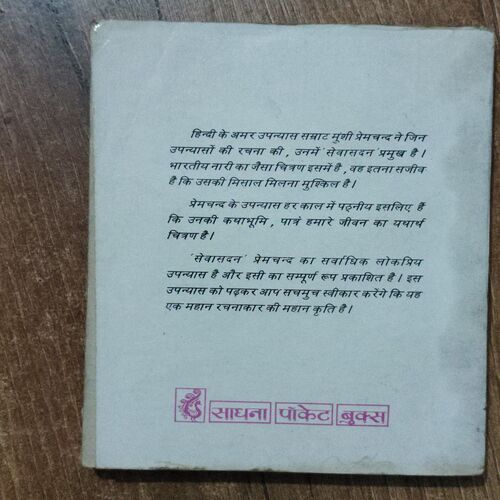 हिन्दी के अमर उपन्यास सम्राट मुंशी प्रेमचन्द ने जिन
उपन्यासों की रचना की, उनमें 'सेवासदन' प्रमुख है।
भारतीय नारी का जैसा चित्रण इसमें है, वह इतना सजीव
है कि उसकी मिसाल मिलना मुश्किल है।
प्रेमचन्द के उपन्यास हर काल में पठनीय इसलिए हैं
कि उनकी कथाभूमि, पात्र हमारे जीवन का यथार्थ
चित्रण है।
'सेवासदन' प्रेमचन्द का सर्वाधिक लोकप्रिय
उपन्यास है और इसी का सम्पूर्ण रूप प्रकाशित है। इस
उपन्यास को पढ़कर आप सचमुच स्वीकार करेंगे कि यह
एक महान रचनाकार की महान कृति है।
साधना पॉकेट बुक्स